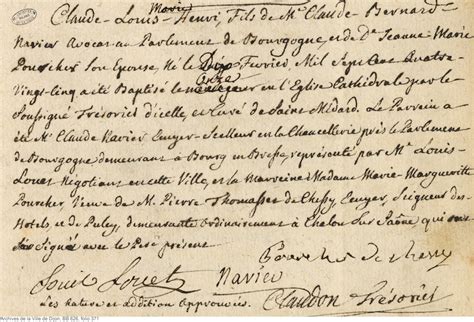 Marie
Claude-Louis-Henri, Fils de Mr Claude-Bernard-
Navier Avocat au Parlement de Bourgogne, et de De Jeanne-Marie
Pourcher son Epouse Né le Février, Mil Sept Cent Quatre
onze
Vingt-Cinq a été Baptisé le en l'Eglise Cathédrale par le
Soussigné Trésorier d'icelle, et Curé de Saint Médard. Le Parrein a
été Mr Claude Navier Ecuyer-Scelleur en la Chancellerie près le Parlement
de Bourgogne demeurant à Bourg en Bresse, représenté par Mr Louis-
Louet Négotiant en cette Ville, et la Marreine Madame Marie-Margueritte
Pourcher, Veuve de M. Pierre Thomasset de Chessy, Ecuyer, Seigneur des-
Hotels, et de Puley, demeurante Ordinairement à Chalon Sur Saône, qui
Signé avec le Père présent.
Pourcher de chessy
Louis Louet Navier
Les rature et addition Approuvées. Claudon Trésorier
Archives de la Ville de Dijon, BB 626, folio 371